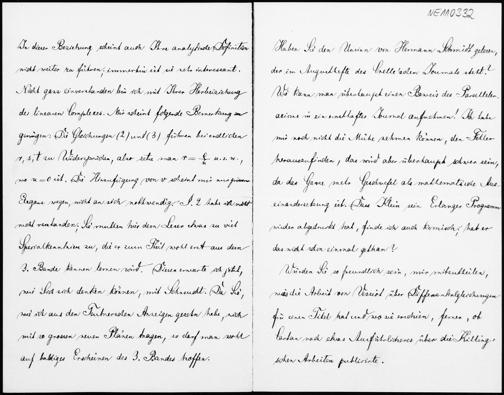 NEM0332
In dieser Beziehung scheint auch Ihre analytische Definition
nicht weiter zu führen; immerhin ist sie sehr interessant.
Nicht ganz einverstanden bin ich mit Ihrer Herbeiziehung
des linearen Complexes. Mir scheint folgende Bemerkung zu
genügen: Die Gleichungen (2) und (3) führen bei endlichen
r, s, t zu Widersprüchen, aber setze man r = u.s.w.,
wo = 0 ist. Die Hinzufügung von scheint mir nur
Eleganz wegen, nicht an sich nothwendig. § 2 habe ich noch
nicht verstanden; Sie muthen hier dem Leser etwas zu viel
Specialkenntnisse zu, die er zum Theil wohl erst aus dem
3. Bande kennen lernen wird. Diesen erwarte ich jetzt,
wie Sie sich denken können, mit Sehnsucht. Da Sie,
wie ich aus den Teubnerschen Anzeigen gesehen habe, sich
mit so grossen neuen Plänen tragen, so darf man wohl
auf baldiges Erscheinen des 3. Bandes hoffen.
Haben Sie den Unsinn von Hermann Schmidt gelesen,
der im Augusthefte des Crelle'schen Journals steht?
Wie kann man überhaupt einen Beweis des Parallelen-
axioms in ein ernsthaftes Journal aufnehmen! Ich habe
mir noch nicht die Mühe nehmen können, den Fehler
herauszufinden, das wird aber überhaupt schwer sein,
da das Ganze mehr Geschwafel als mathematische Aus-
einandersetzung ist. Dass Klein sein Erlanger Programm
wieder abgedruckt hat, finde ich auch komisch; hat er
das nicht schon einmal gethan?
Würden Sie so freundlich sein, mir mitzutheilen,
was die Arbeit von Vessiot über Differentialgleichungen
für einen Titel hat und wo sie erschien, ferner, ob
Cartan noch etwas Ausführlicheres über die Killing-
schen Arbeiten publicirte.